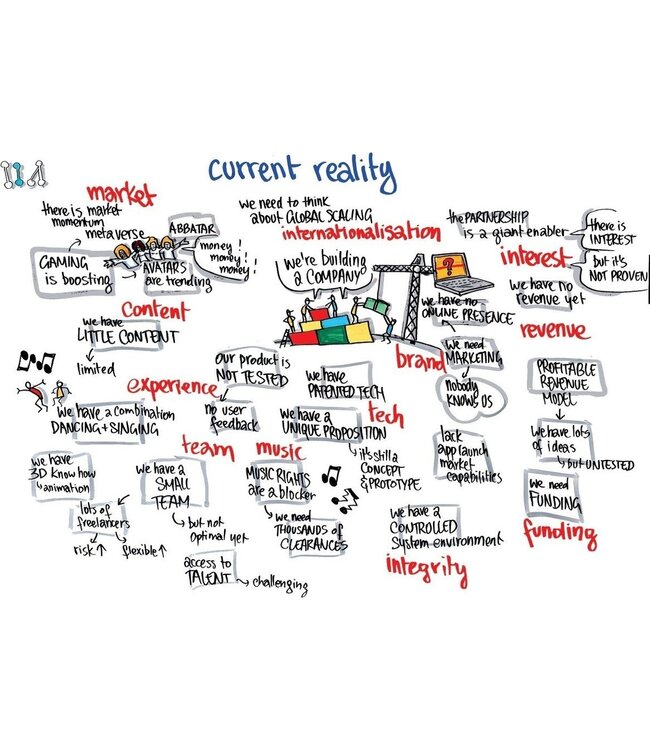 current reality
market
there is market
momentum
metaverse
ABBATAR
money!
money!
money!
GAMING
is boosting
AVATARS
are trending
we need to think
about GLOBAL SCALING
internationalisation
we're building
a COMPANY
?
the PARTNERSHIP
is a giant enabler
there is
INTEREST
but it's
NOT PROVEN
interest
we have no
revenue yet
revenue
content
we have
LITTLE CONTENT
limited
we have no
ONLINE PRESENCE
brand
we need
MARKETING
nobody
KNOWS US
PROFITABLE
REVENUE
MODEL
we have lots
of ideas
but UNTESTED
we need
FUNDING
funding
experience
our product is
NOT TESTED
no user
feedback
we have a combination
DANCING + SINGING
we have
PATENTED TECH
tech
we have a
UNIQUE PROPOSITION
it's still a
CONCEPT
& PROTOTYPE
lack
app launch
market
capabilities
team
we have
3D know how
& animation
lots of
freelancers
risk ↑
flexible ↑
we have a
SMALL
TEAM
but not
optimal yet
access to
TALENT
challenging
music
MUSIC RIGHTS
are a blocker
we need
THOUSANDS of
CLEARANCES
we have a
CONTROLLED
system environment
integrity